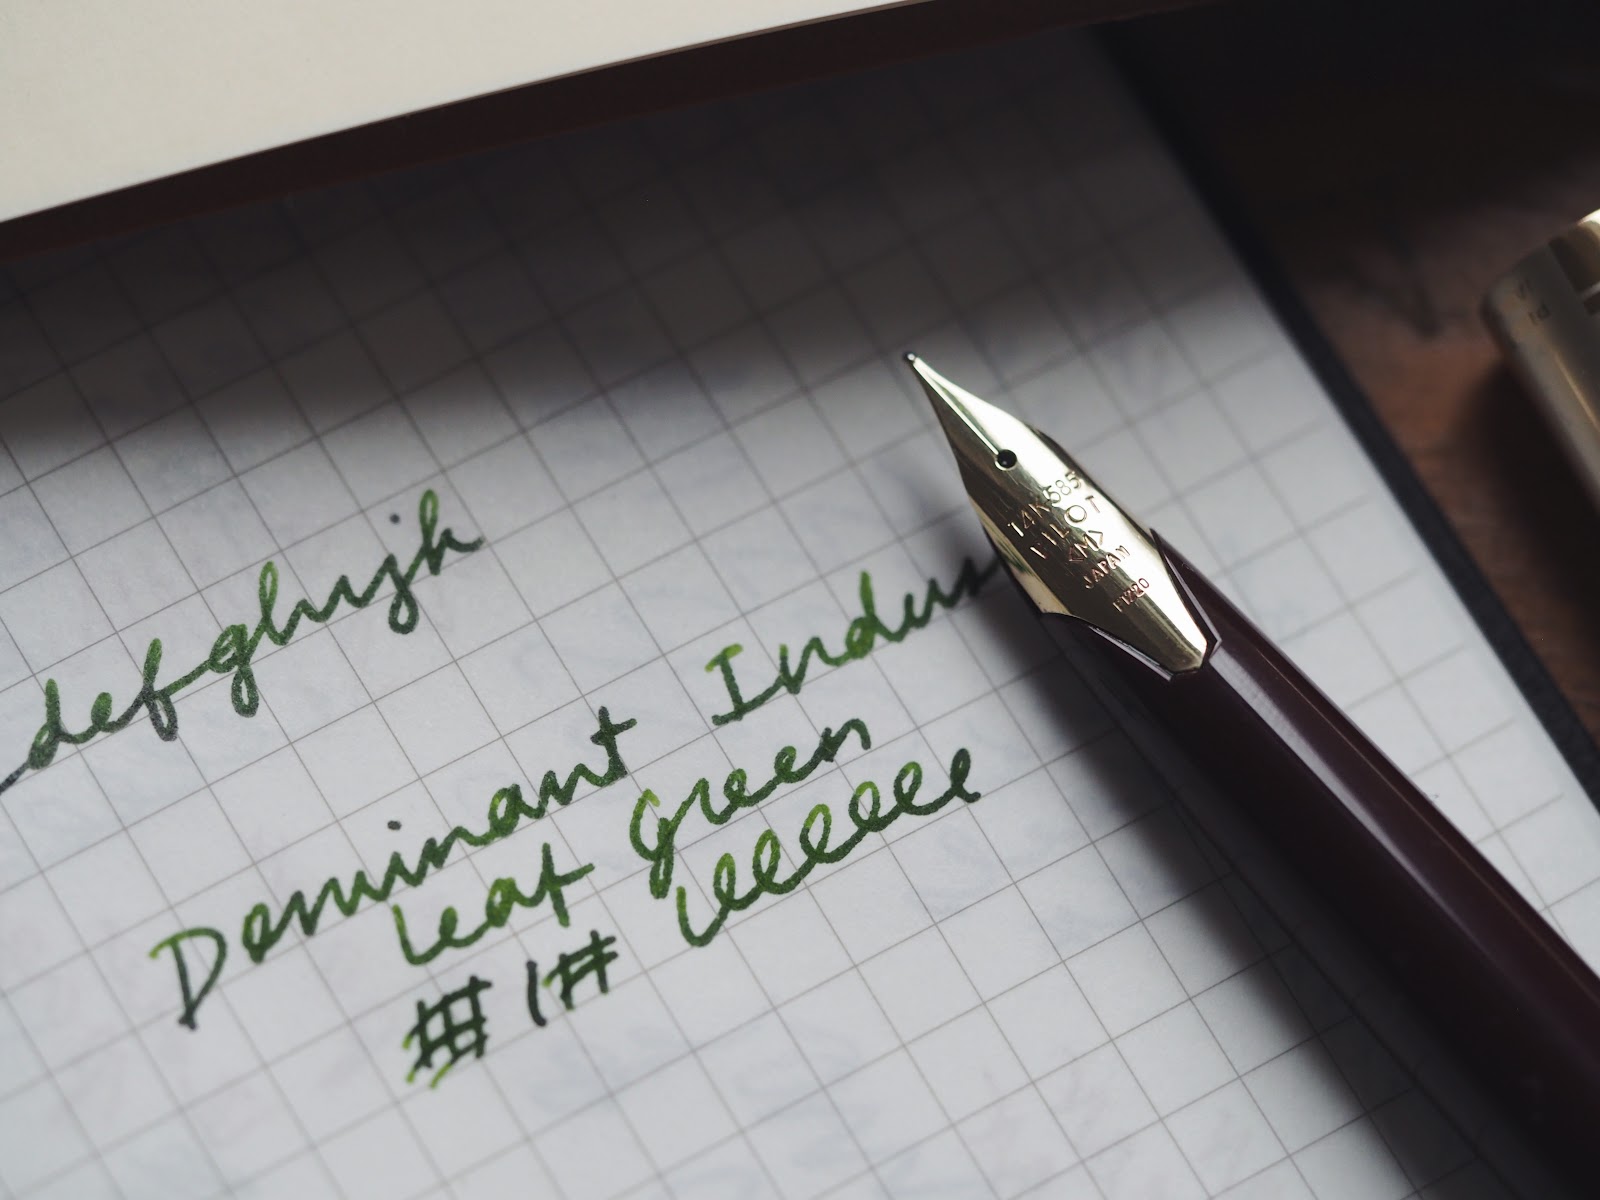 defghijk
Dominant Indus
Leaf Green
#1# eeeeeee
14K585
PILOT
<M>
JAPAN